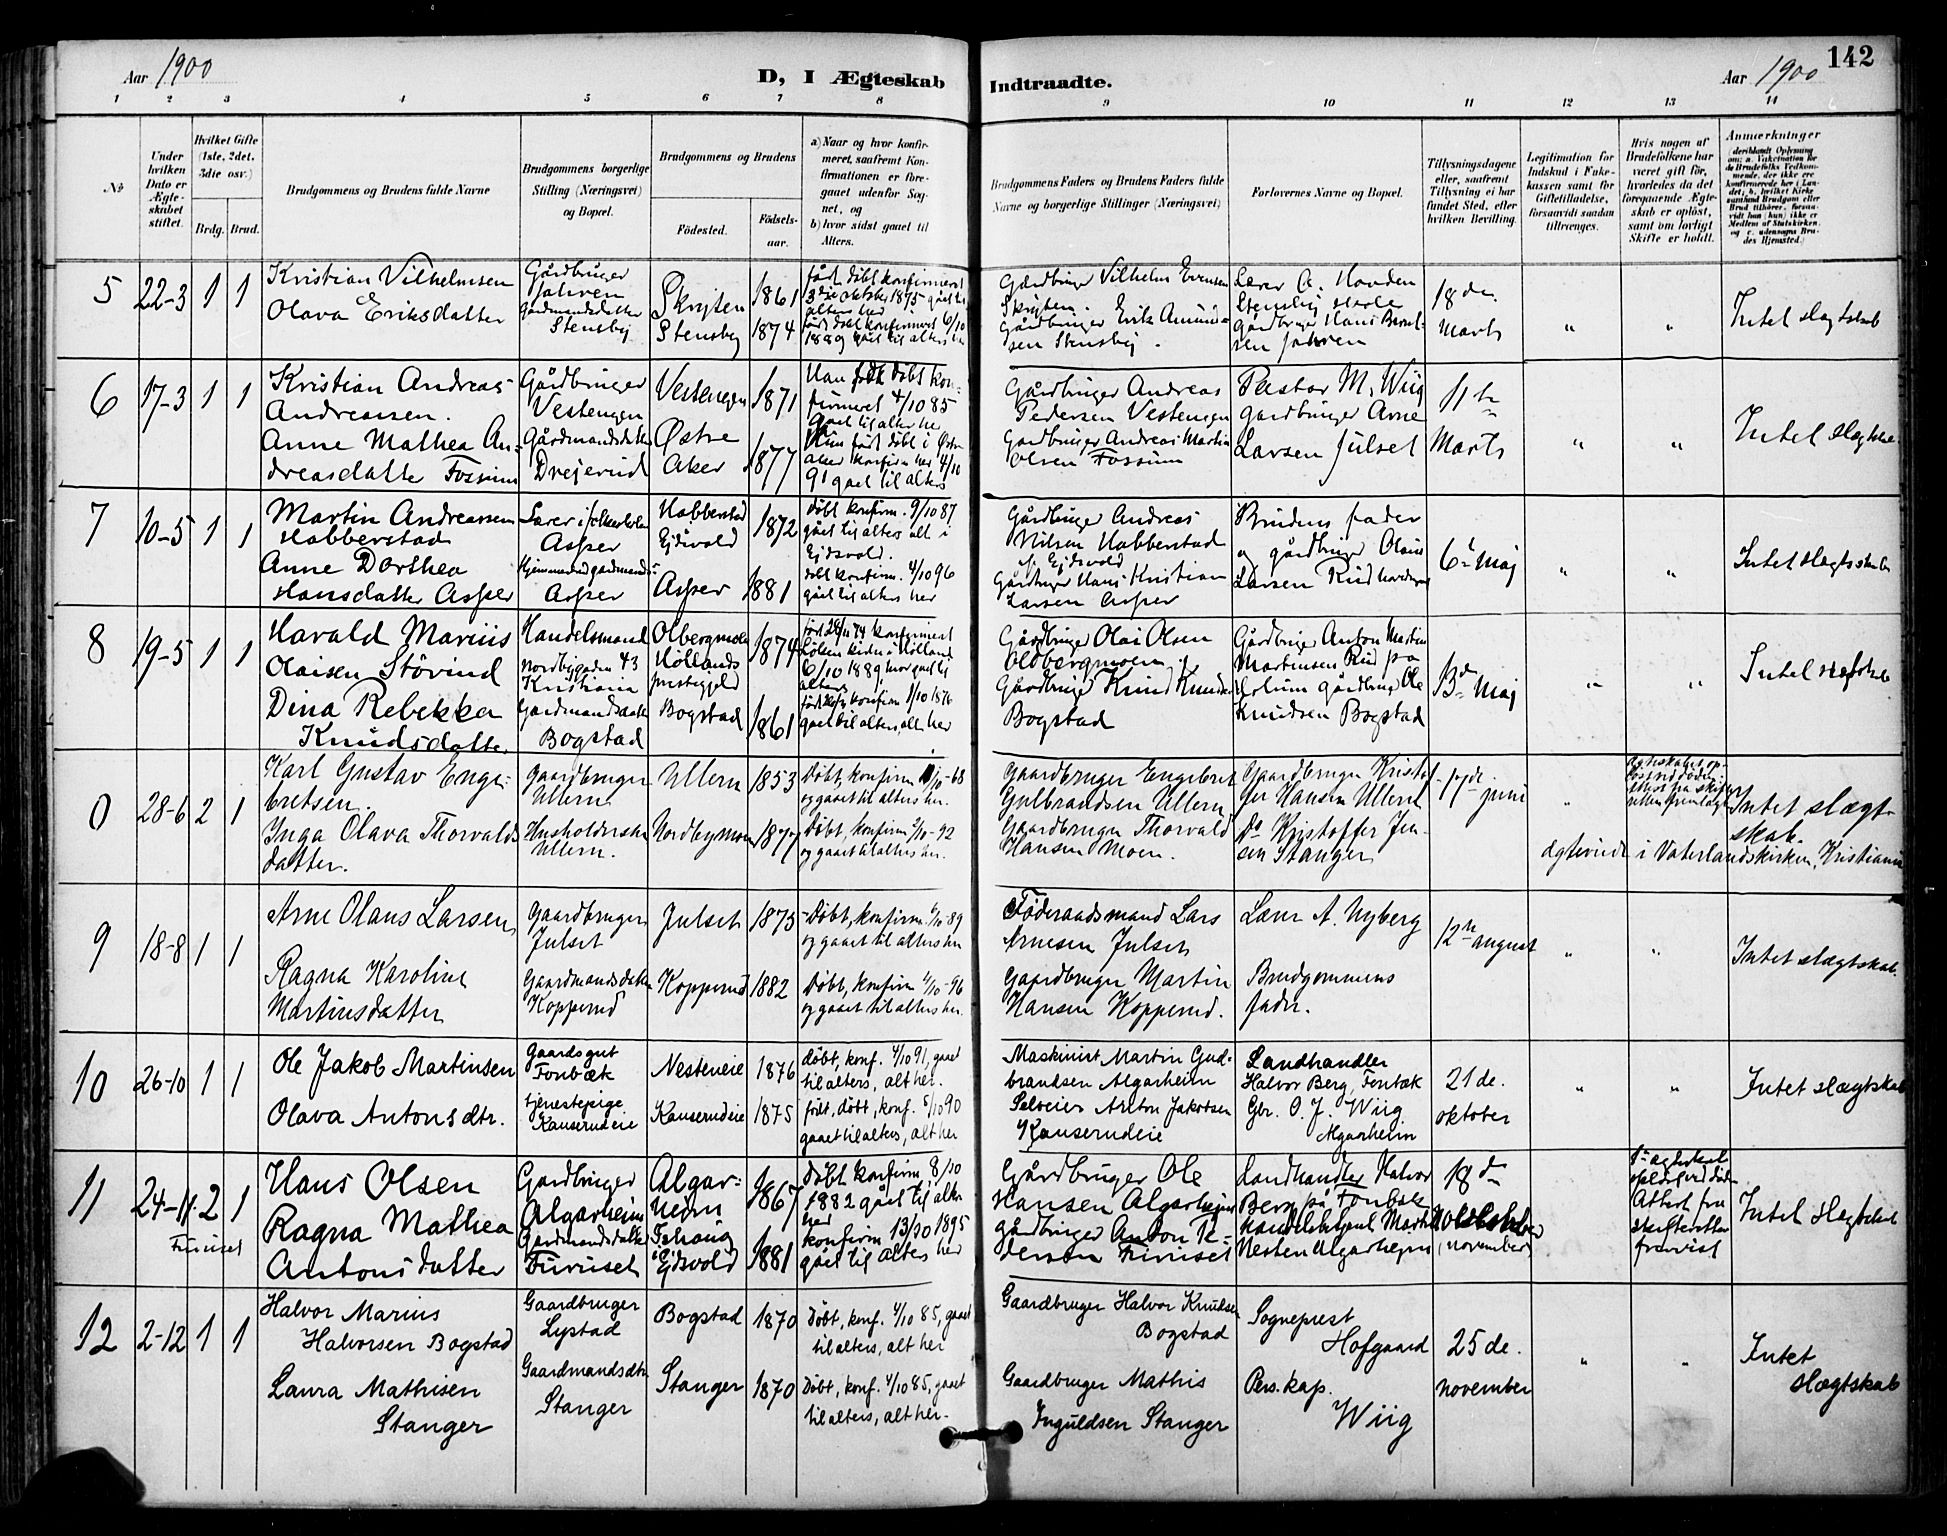 Aar 1900
D, I Ægteskab Indtraadte.
Aar 1900
142
1 2 3 4 5 6 7 8 9 10 11 12 13 14
No
Under hvilken Dato er Ægteskabet stiftet.
Hvilket Gifte (1ste, 2det, 3die osv.)
Brdg. Brud.
Brudgommens og Brudens fulde Navne
Brudgommens borgerlige Stilling (Næringsvei) og Bopæl.
Brudgommens og Brudens
Fødested.
Fødselsaar.
a) Naar og hvor konfirmeret, saafremt Konfirmationen er foregaaet udenfor Sognet, og
b) hvor sidst gaaet til Alters.
Brudgommens Faders og Brudens Faders fulde Navne og borgerlige Stillinger (Næringsvei)
Forlovernes Navne og Bopæl.
Tillysningsdagene eller, saafremt Tillysning ei har fundet Sted, efter hvilken Bevilling.
Legitimation for Indskud i Enkekassen samt for Giftetilladelse, forsaavidt saadan tiltrænges.
Hvis nogen af Brudefolkene har været gift før, hvorledes da det foregaaende Ægteskab er opløst, samt om lovligt Skifte er holdt.
Anmærkninger
5 22-3 1 1
Kristian Vilhelmsen
Olava Eriksdatter
Gårdbruger
Gårdmandsdatter
Stensby
Skrijten 1861
Stensby 1874
født døbt konfirmeret
3die oktober 1875 gået til
alters her
født døbt konfirmeret 6/10
1889 gået til alters her
Gårdbruger Vilhelm Evensen
Skrijten.
Gårdbruger Erik Amund-
sen Stensby.
Lærer A. Hovden
Stensby skole
Gårdbruger Hans Bernt-
sen
18de
Marts
" "
Intet slægtskab
6 17-3 1 1
Kristian Andreas
Andreassen.
Anne Mathea An-
dreasdatter Fossum
Gårdbruger
Vestengen
Gårdmandsdatter
Drejerud
Vestengen 1871
Østre
Aker 1877
Han født døbt kon-
firmeret 4/10 85
gået til alter her
Hun født døbt i Østre
Aker konfirm her 4/10
91 gået til alters
Gårdbruger Andreas
Pedersen Vestengen
Gårdbruger Andreas Martin
Olsen Fossum
Pastor M. Wiig
gårdbruger Arne
Larsen Julset
11te
Marts
" "
Intet slægtskab
7 10-5 1 1
Martin Andreassen
Habberstad
Anne Dorthea
Hansdatter Asper
Lærer i folkeskolen
Asper
Asper
Habberstad
Ejdsvold 1872
Asper 1881
Døbt konfirm. 9/10 87
gået til alters alt i
Ejdsvold.
døbt konfirm. 4/10 96
gået til alters her
Gårdbruger Andreas
Nilsen Habberstad
af Ejdsvold
Gårdbruger Hans Kristian
Larsen Asper
Brudens fader
og gårdbruger Olaus
Larsen Rud
6te Maj
" "
Intet slægtskab
8 19-5 1 1
Harald Marius
Olaisen Støvind
Dina Rebekka
Knudsdatter
Handelsmand
Nordbygaden 43
Kristiania
Gårdmandsdatter
Bogstad
Olbergmoen
Høllands
prestegjeld 1874
Bogstad 1861
født 28/11 74 konfirmeret
Løken kirke i Hølland
6/10 1889, hvor gået til
alters
født døbt konfirm 1/10 1876
gået til alters, alt her
Gårdbruger Olai Olsen
Oldbergmoen
Gårdbruger Knud Knudsen
Bogstad
Gårdbruger Anton Martin
Martinsen Rud på
Holum gårdbruger Ole
Knudsen Bogstad
13de Maj
" "
Intet slægtskab
0 28-6 2 1
Karl Gustav Enge-
bretsen.
Inga Olava Thorvalds-
datter.
Gaardbruger
Ullern
Husholderske
Ullern.
Ullern 1853
Nordbymoen 1877
Døbt, konfirm -68
og gaaet til alters her.
Døbt, konfirm 2/10-92
og gaaet til alters her.
Gaardbruger Engebret
Gulbrandsen Ullern
Gaardbruger Thorvald
Hansen Moen.
Gaardbruger Kristof-
fer Hansen Ullern
Do Kristoffer Jen-
sen Stanger
17de juni
"
Intet slægt-
skab.
ægteviede i Vaterlandskirken, Kristiania
9 18-8 1 1
Arne Olaus Larsen,
Ragna Karoline
Martinsdatter
Gaardbruger
Julset
Gaardmandsdatter
Kopperud
Julset 1875
Kopperud 1882
Døbt, konfirm. 6/10-89
og gaaet til alters her
Døbt, konfirm 4/10-96
og gaaet til alters her.
Føderaadsmand Lars
Arnesen Julset
Gaardbruger Martin
Hansen Kopperud.
Lærer A. Nyberg
Brudgommens
fader.
12te august
" "
Intet slægtskab.
10 26-10 1 1
Ole Jakob Martinsen
Olava Antonsdtr.
Gaardsgut
Fonbæk
tjenestepige
Kauserudeie
Nesteneie 1876
Kauserudeie 1875
døbt, konf. 4/10 91, gaaet
til alters, alt her.
født, døbt, konf. 5/10 90
gaaet til alters, alt her
Maskinist Martin Gud-
brandsen Algarheim
Selveier Anton Jakobsen
Kauserudeie
Landhandler
Halvor Berg, Fonbæk
Gbr. O. J. Wiig
Algarheim
21de
oktober
" "
Intet slægtskab
11 24-11 2 1
Furuset
Hans Olsen
Ragna Mathea
Antonsdatter
Gårdbruger
Algarheim
Gårdmandsdatter
Furuset
Algar-
heim 1867
i
Ejdsvold 1881
Døbt konfirm 8/10
1882 gået til alter
her
konfirm 13/10 1895
gået til alters her
Gårdbruger Ole
Hansen Algarheim
gårdbruger Anton Pe-
dersen Furuset
Landhandler Halvor
Berg på Fonbæk
Handelsbetjent Martin
Nesten Algarhejm
18de
(november)
1ste ægteskab
opløst ved død
Attest fra
skifteretten
fremvist
Intet slægtskab
12 2-12 1 1
Halvor Marius
Halvorsen Bogstad
Laura Mathisen
Stanger
Gaardbruger
Lystad
Gaardmandsdtr.
Stanger
Bogstad 1870
Stanger 1870
Døbt, konf. 4/10 85, gaaet
til alters, alt her
Døbt, konf. 4/10 85, gaaet
til alters, alt her.
Gaardbruger Halvor Knudsen
Bogstad
Gaardbruger Mathis
Inguldsen Stanger
Sogneprest
Hofgaard
Pers. kap.
Wiig
25de.
november
" "
Intet
slægtskab